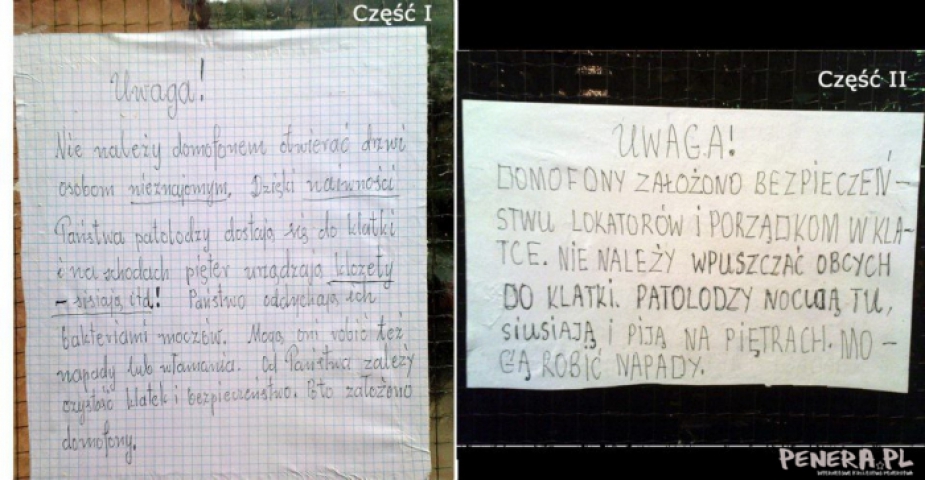 Część I
Uwaga!
Nie należy domofonem otwierać drzwi
osobom nieznajomym. Dzięki naiwności
Państwa patolodzy dostają się do klatki
i na schodach pięter urządzają klozety
– sisiają itd! Państwo oddychają ich
bakteriami moczów. Mogą oni robić też
napady lub włamania. Od Państwa zależy
czystość klatek i bezpieczeństwo. Po to założono
domofony.
Część II
UWAGA!
DOMOFONY ZAŁOŻONO BEZPIECZEŃ-
STWU LOKATORÓW i PORZĄDKOM W KLA-
TCE. NIE NALEŻY WPUSZCZAĆ OBCYCH
DO KLATKI. PATOLODZY NOCUJĄ TU,
SIUSIAJĄ i PIJĄ NA PIĘTRACH. MO-
GĄ ROBIĆ NAPADY.
PENERA.PL